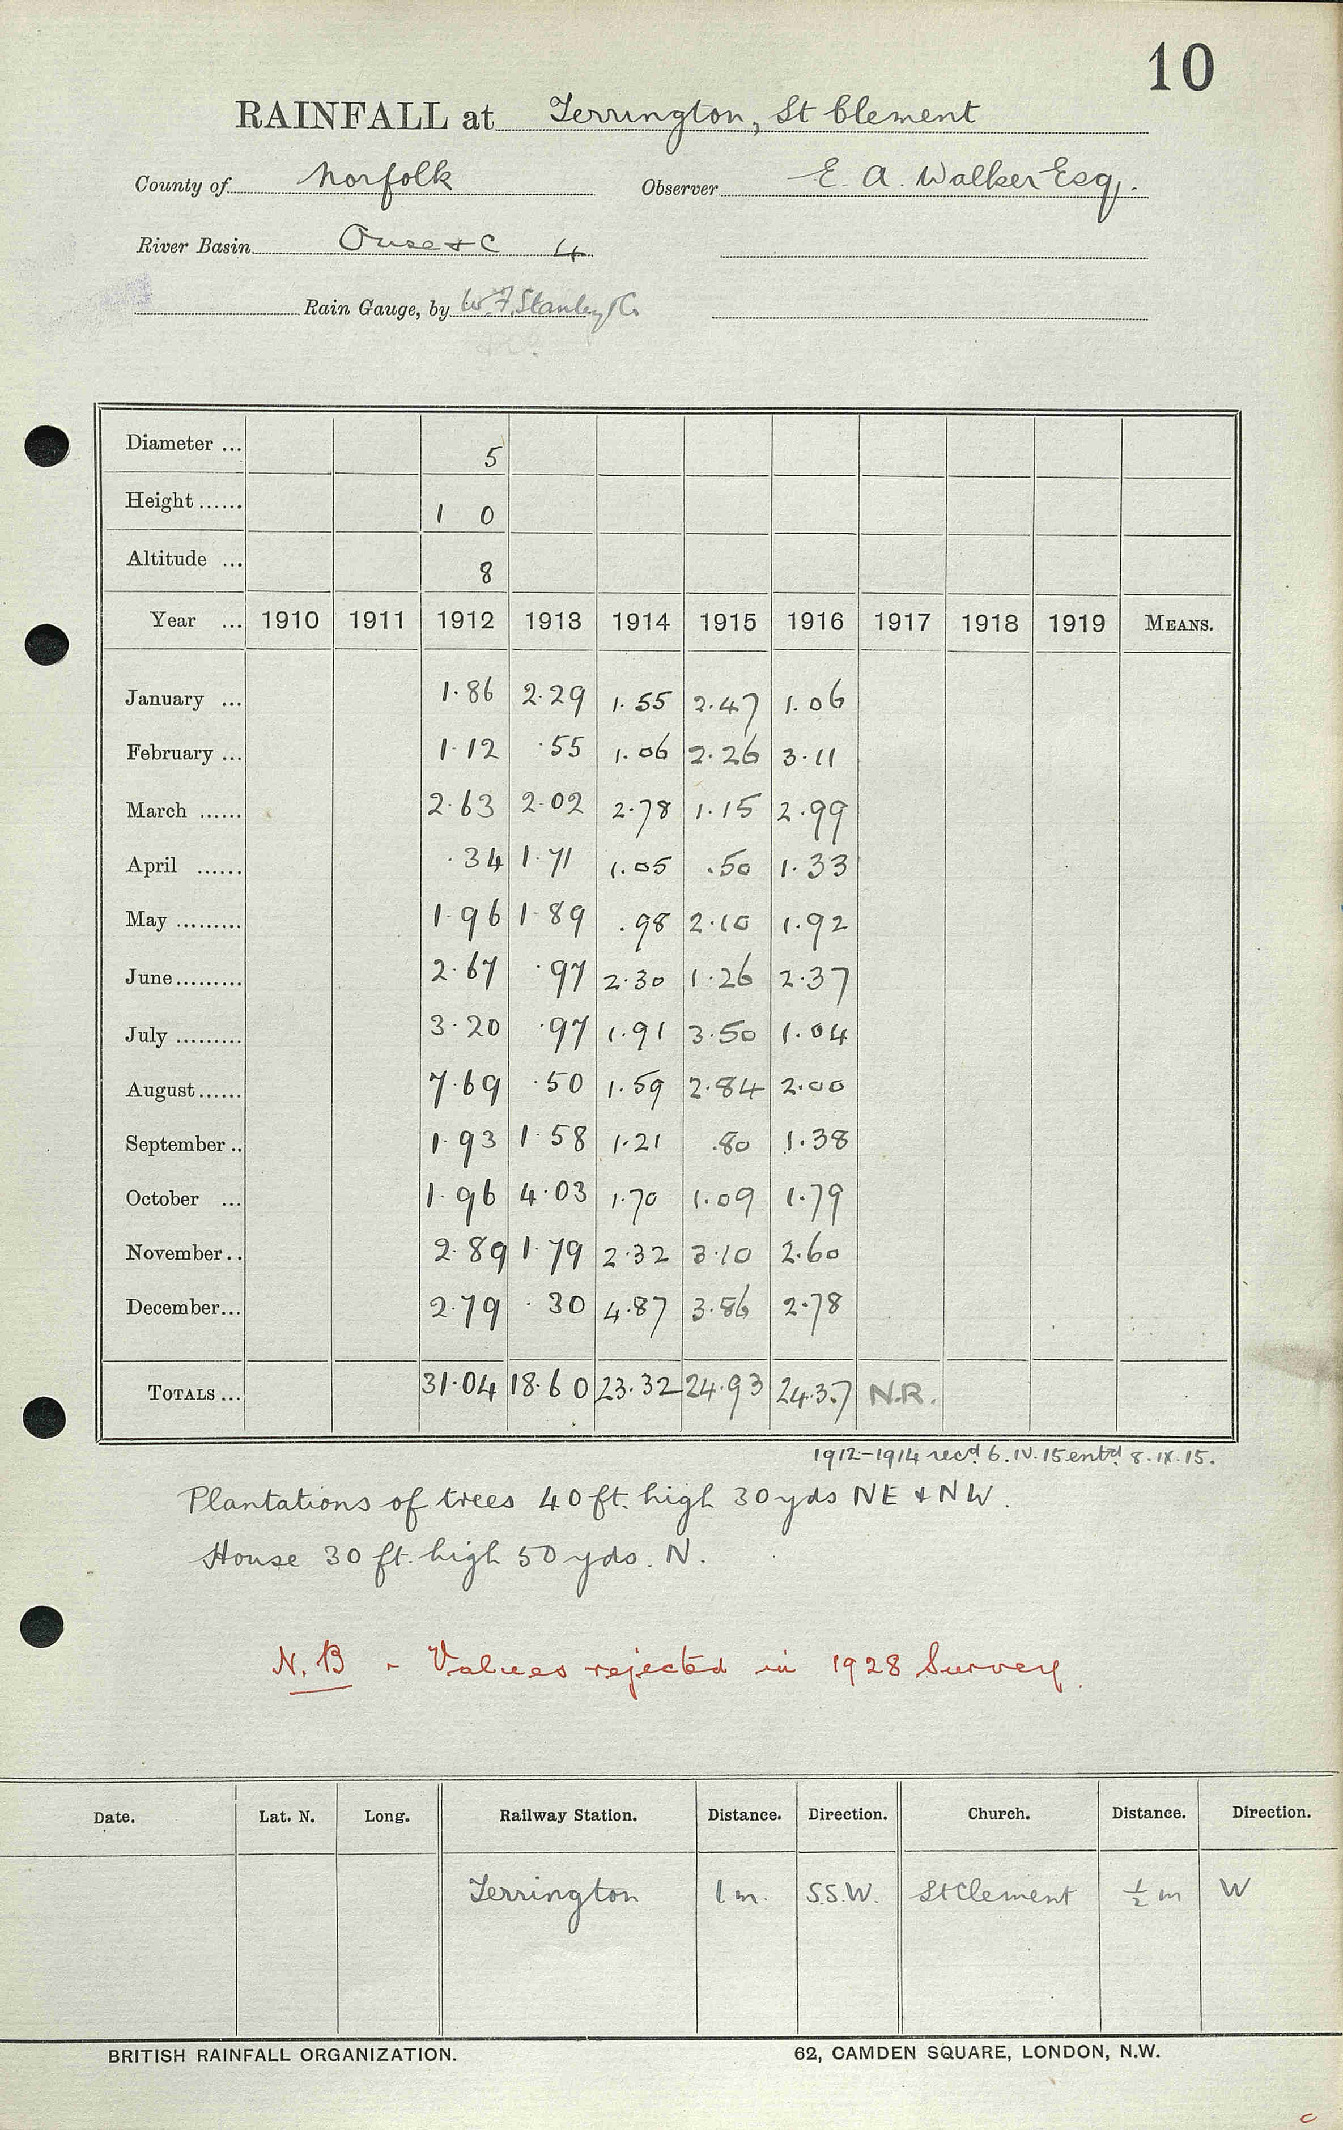 10
RAINFALL at Terrington, St Clement
County of Norfolk Observer E. A. Walker Esq.
River Basin Ouse &c 4
Rain Gauge, by W. F. Stanley & Co
Diameter ... 5
Height ...... 1 0
Altitude ... 8
Year ... 1910 1911 1912 1913 1914 1915 1916 1917 1918 1919 MEANS.
January ... 1.86 2.29 1.55 2.47 1.06
February ... 1.12 .55 1.06 2.26 3.11
March ...... 2.63 2.02 2.78 1.15 2.99
April ...... .34 1.71 1.05 .50 1.33
May ......... 1.96 1.89 .98 2.10 1.92
June ......... 2.67 .97 2.30 1.26 2.37
July ......... 3.20 .97 1.91 3.50 1.04
August ...... 7.69 .50 1.59 2.84 2.00
September .. 1.93 1.58 1.21 .80 1.38
October ... 1.96 4.03 1.70 1.09 1.79
November .. 2.89 1.79 2.32 3.10 2.60
December ... 2.79 .30 4.87 3.86 2.78
TOTALS ... 31.04 18.60 23.32 24.93 24.37 N.R.
1912-1914 recd. 6.IV.15 entd 8.IX.15.
Plantations of trees 40 ft. high 30 yds NE & NW.
House 30 ft. high 50 yds. N.
N.B - Values rejected in 1928 Survey.
Date. Lat. N. Long. Railway Station. Distance. Direction. Church. Distance. Direction.
Terrington 1 m. S.S.W. St Clement ½ m W
BRITISH RAINFALL ORGANIZATION. 62, CAMDEN SQUARE, LONDON, N.W.
c